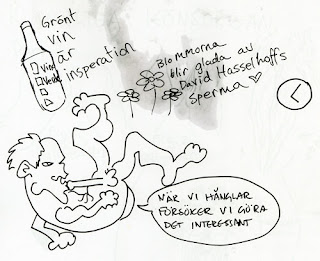 Grönt
vin
är
insperation
Vin
Blommorna
blir glada av
David Hasselhoffs
sperma
NÄR VI HÅNGLAR
FÖRSÖKER VI GÖRA
DET INTERESSANT